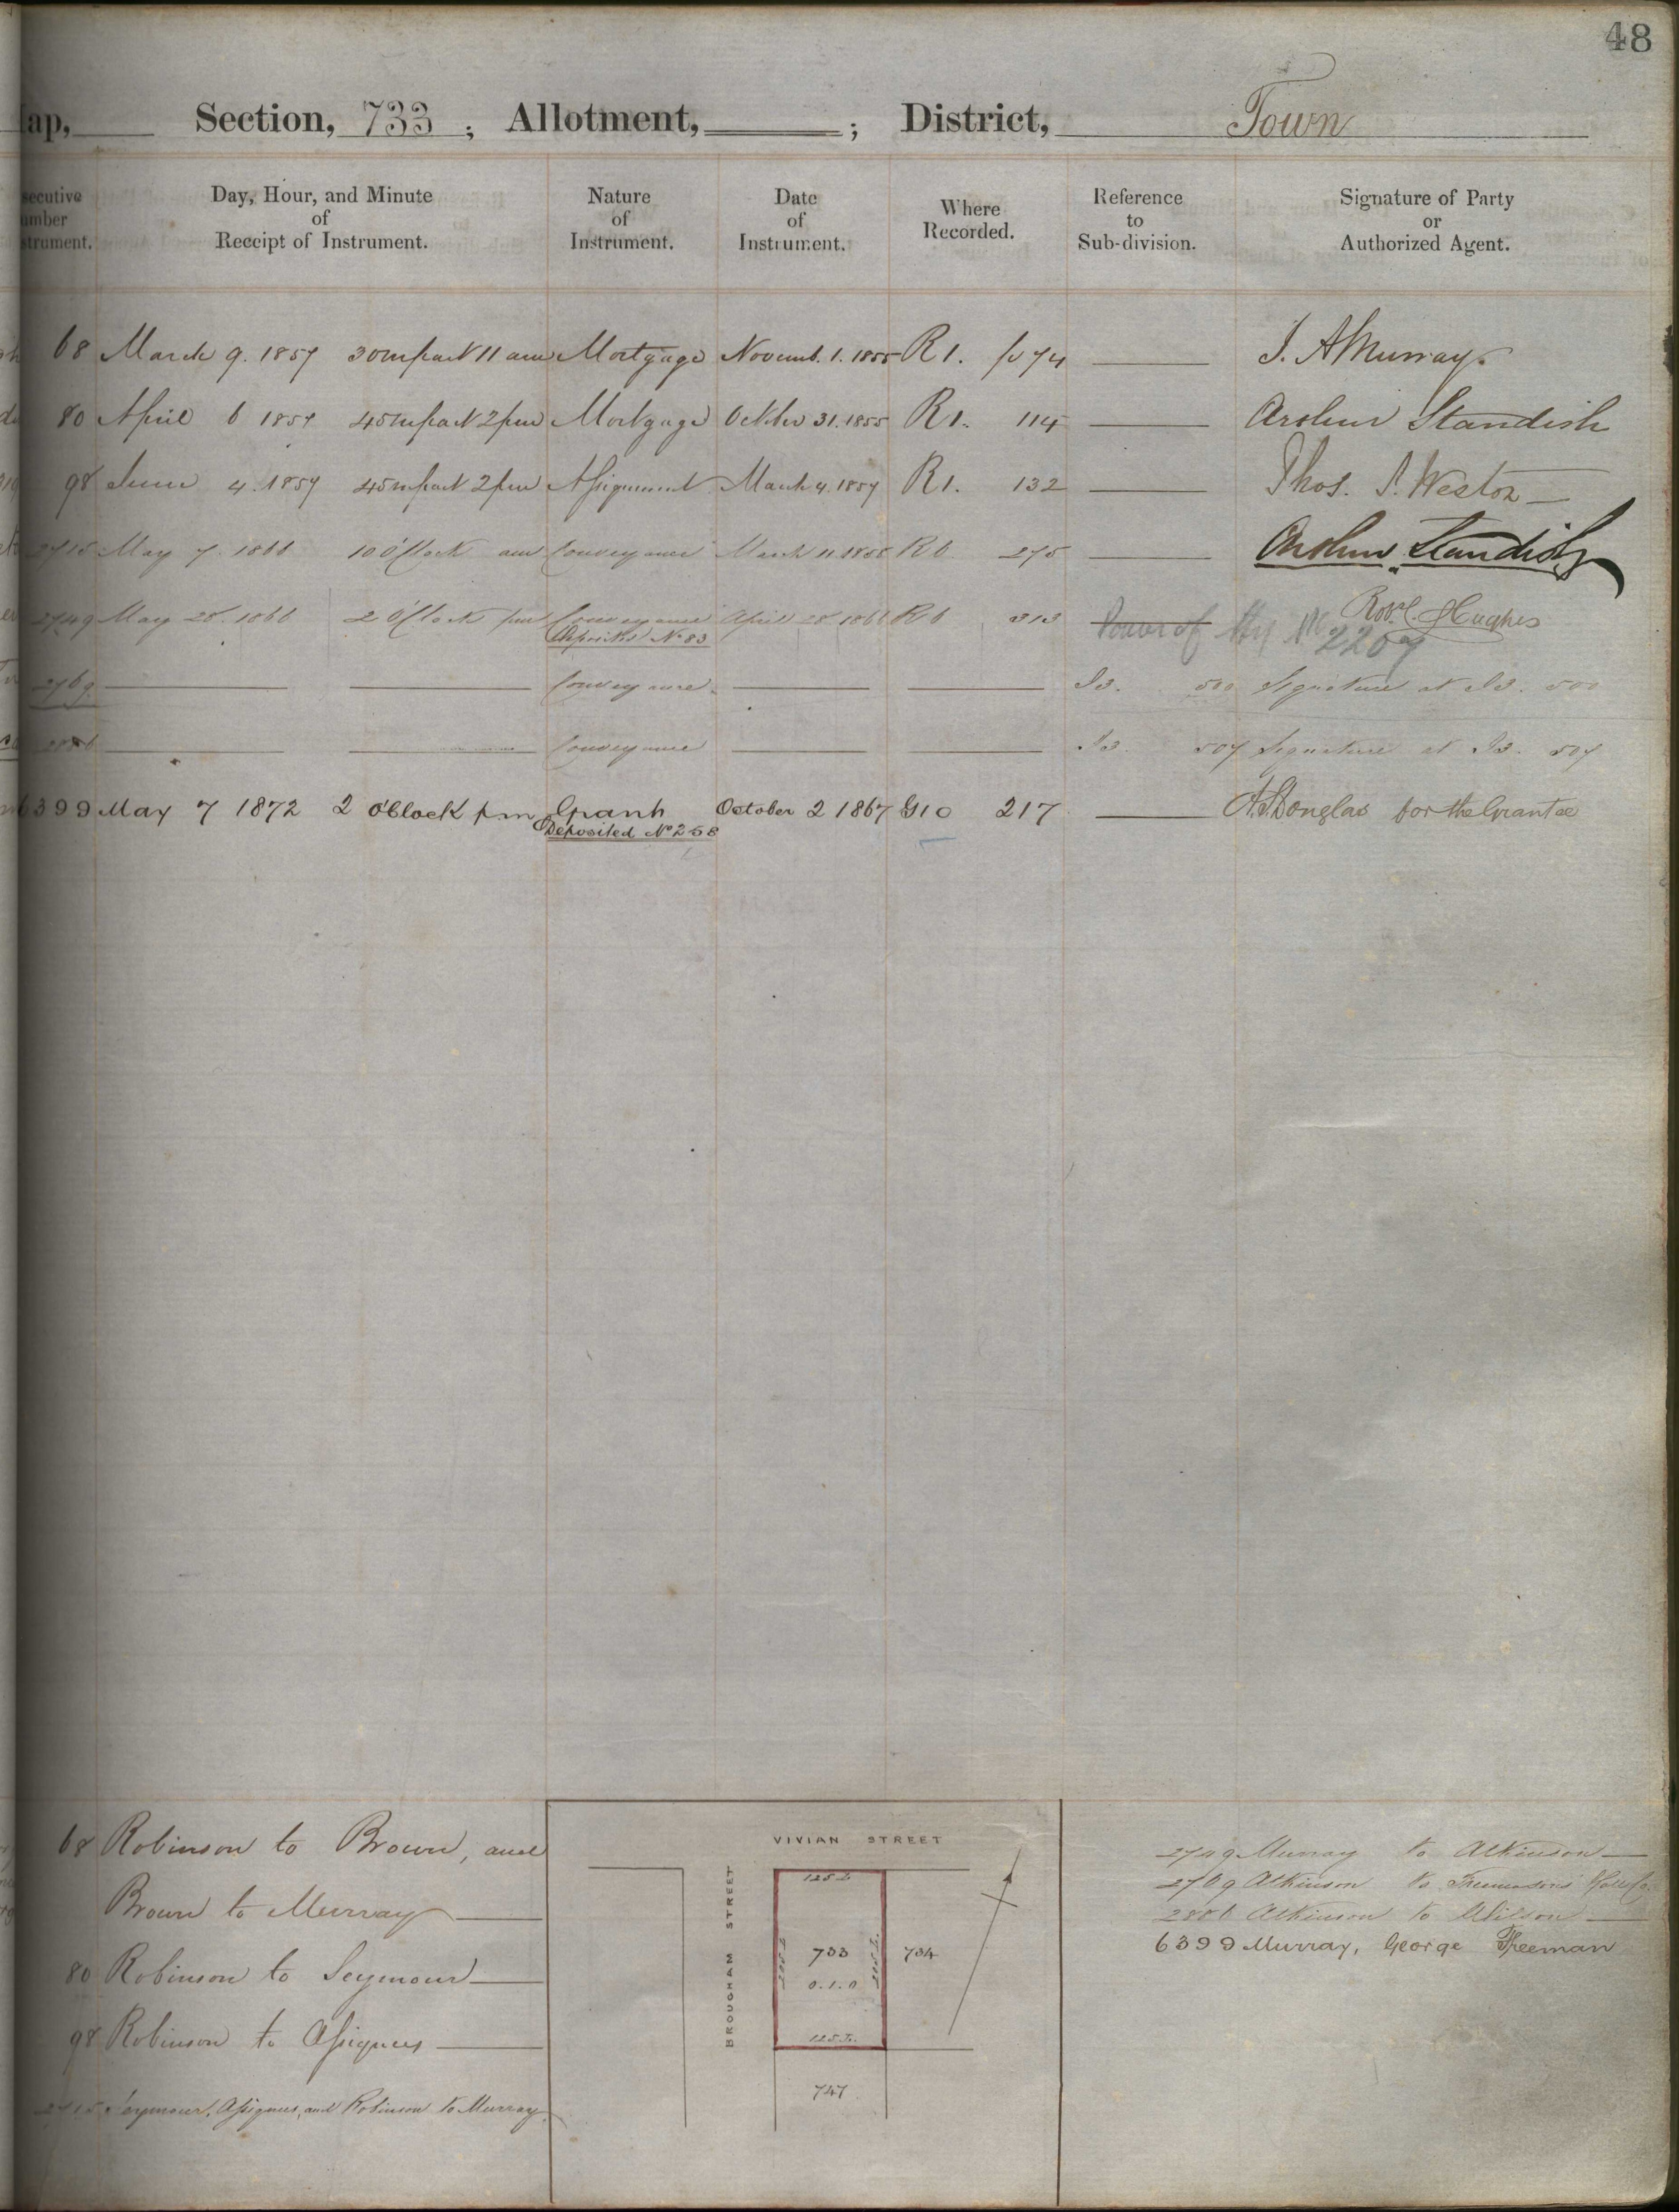 48
ap, Section, 733 ; Allotment, ; District, Town
ecutive
umber
strument.
Day, Hour, and Minute
of
Receipt of Instrument.
Nature
of
Instrument.
Date
of
Instrument.
Where
Recorded.
Reference
to
Sub-division.
Signature of Party
or
Authorized Agent.
68 March 9. 1857 30 m past 11 am Mortgage Novemb. 1. 1855 R 1. 74 J. A Murray
80 April 6 1857 45 m past 2 pm Mortgage October 31. 1855 R 1. 114 Arthur Standish
98 June 4. 1857 45 m past 2 pm Assignment March 4. 1857 R 1. 132 Thos. S. Weston
2715 May 7. 1866 10 O'Clock am Conveyance March 11. 1858 R 6. 275 Arthur Standish
2749 May 28. 1866 2 O'Clock pm Conveyance April 28 1866 R 6 313 Robt. C. Hughes
Deposited No 83
Power of Atty No 2209
2769 Conveyance I3. 500 Signature at I3. 500
2886 Conveyance I3. 507 Signature at I3. 507
6399 May 7 1872 2 O'Clock pm Grant October 2 1867 G10 217 A. S. Douglas for the Grantee
Deposited No 258
68 Robinson to Brown, and
Brown to Murray
80 Robinson to Seymour
98 Robinson to Assignees
2715 Seymour, Assignees, and Robinson to Murray
VIVIAN STREET
BROUGHAM STREET
125 L
205 L
733
0.1.0
205 L
734
125 L.
747
2749 Murray to Atkinson
2769 Atkinson to
2886 Atkinson to Wilson
6399 Murray, George Freeman